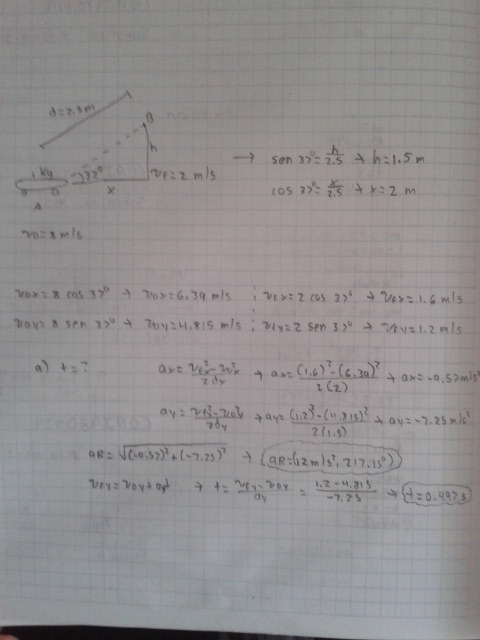 d=2.5m
B
h
1 Kg
37°
x
vf=2 m/s
A
v0=8 m/s
→ sen 37°=h/2.5 → h=1.5 m
cos 37°=x/2.5 → x=2 m
v0x=8 cos 37° → v0x=6.39 m/s ¦ vfx=2 cos 37° → vfx=1.6 m/s
v0y=8 sen 37° → v0y=4.815 m/s ¦ vfy=2 sen 37° → vfy=1.2 m/s
a) t=? ax=(vf²x-v0²x)/2dx → ax=((1.6)²-(6.39)²)/2(2) → ax=-9.57m/s²
ay=(vf²-v0²y)/2dy → ay=((1.2)²-(4.815)²)/2(1.5) → ay=-7.25 m/s²
aR=√(-9.57)²+(-7.25)² → aR=(12m/s², 217.15°)
vfy=v0y+ayt → t=(vfy-v0y)/ay = (1.2-4.815)/-7.25 → t=0.497s